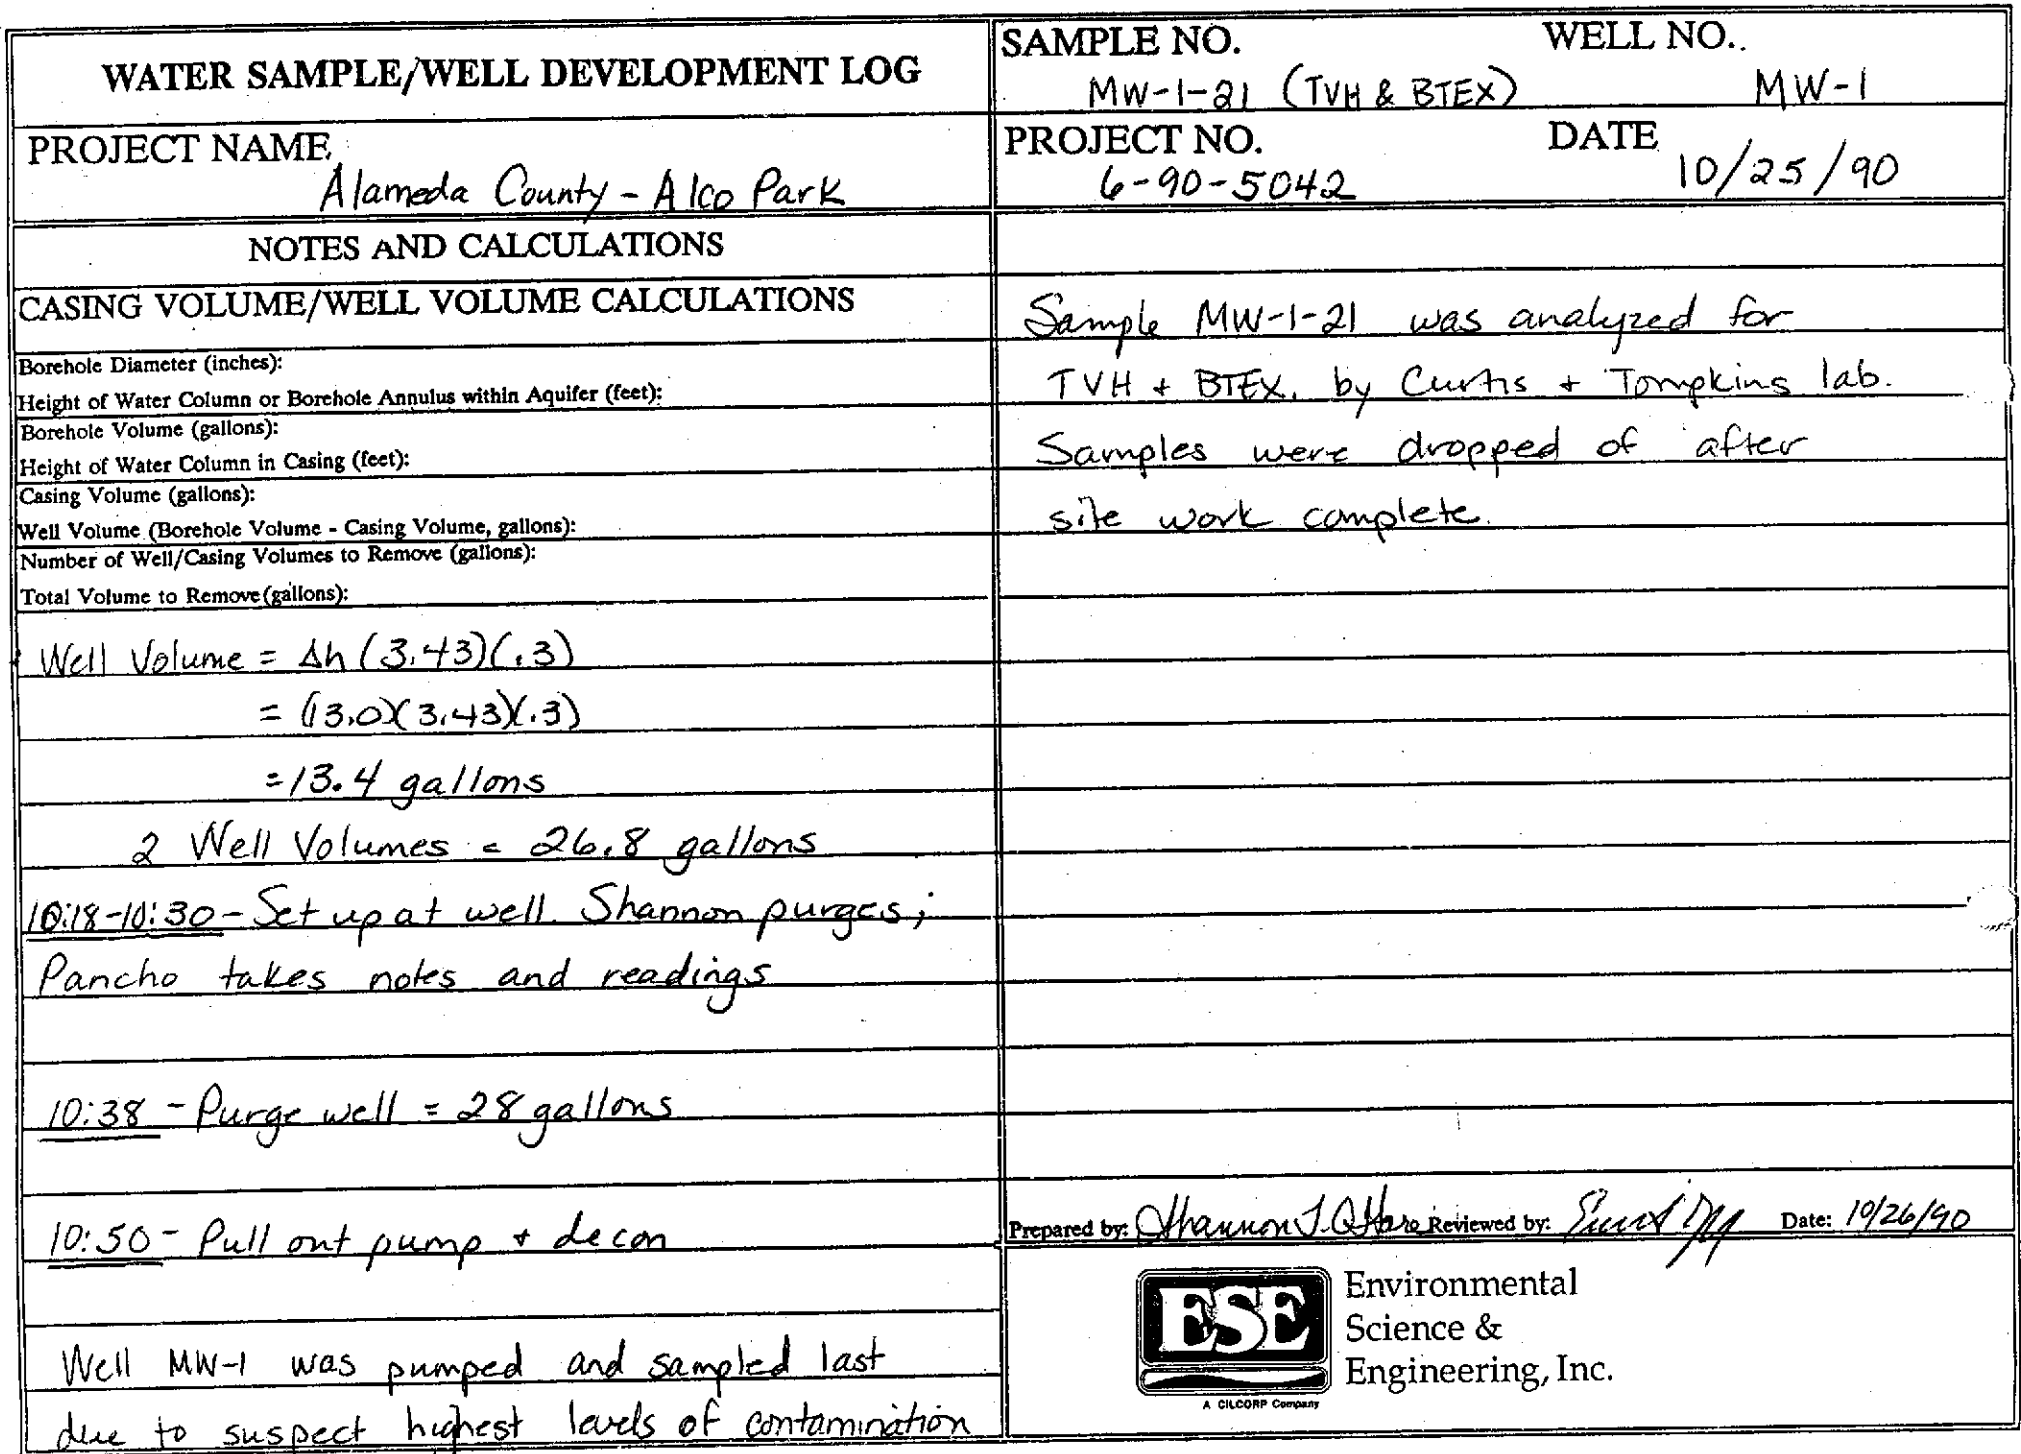 WATER SAMPLE/WELL DEVELOPMENT LOG
SAMPLE NO.
MW-1-21 (TVH & BTEX)
WELL NO.
MW-1
PROJECT NAME
Alameda County - Alco Park
PROJECT NO.
6-90-5042
DATE
10/25/90
NOTES AND CALCULATIONS
CASING VOLUME/WELL VOLUME CALCULATIONS
Borehole Diameter (inches):
Height of Water Column or Borehole Annulus within Aquifer (feet):
Borehole Volume (gallons):
Height of Water Column in Casing (feet):
Casing Volume (gallons):
Well Volume (Borehole Volume - Casing Volume, gallons):
Number of Well/Casing Volumes to Remove (gallons):
Total Volume to Remove (gallons):
Well Volume = Δh (3.43)(.3)
= (13.0)(3.43)(.3)
= 13.4 gallons
2 Well Volumes = 26.8 gallons
10:18-10:30 - Set up at well. Shannon purges;
Pancho takes notes and readings
10:38 - Purge well = 28 gallons
10:50 - Pull out pump + decon
Well MW-1 was pumped and sampled last
due to suspect highest levels of contamination
Sample MW-1-21 was analyzed for
TVH + BTEX, by Curtis + Tompkins lab.
Samples were dropped of after
site work complete.
Prepared by: Shannon J. O'Hare Reviewed by: Date: 10/26/90
ESE
Environmental
Science &
Engineering, Inc.
A CILCORP Company